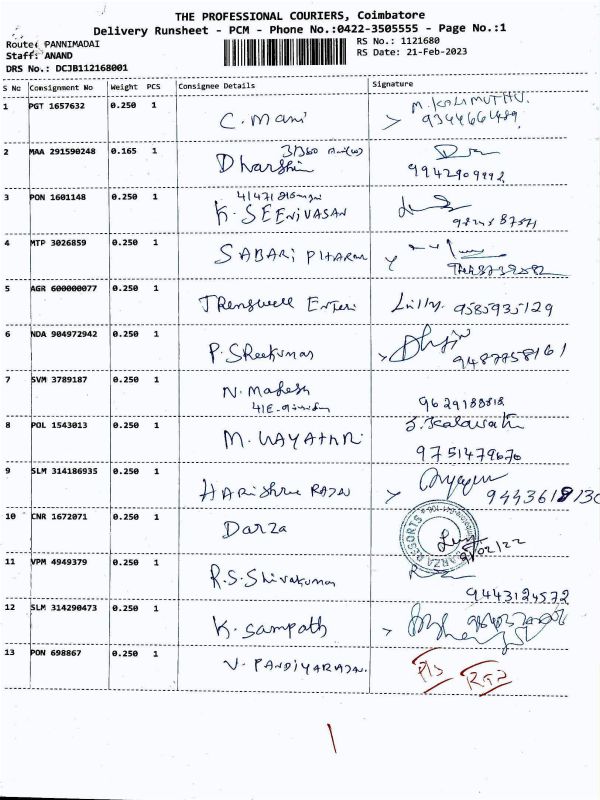 THE PROFESSIONAL COURIERS, Coimbatore
Delivery Runsheet - PCM - Phone No.:0422-3505555 - Page No.:1
Route: PANNIMADAI
RS No.: 1121680
Staff: ANAND
RS Date: 21-Feb-2023
DRS No.: DCJB112168001
S No Consignment No Weight PCS Consignee Details Signature
1 PGT 1657632 0.250 1 C. Mani M. KALIMUTHU.
9344664489
2 MAA 291590248 0.165 1 Dharshin
9942909992
3 PON 1601148 0.250 1 K. SEENIVASAN
4 MTP 3026859 0.250 1 SABARI
5 AGR 600000077 0.250 1 Lilly. 9585935129
6 NDA 904972942 0.250 1 P. Sreekumar
9487758161
7 SVM 3789187 0.250 1 N. Mahesh
9629188818
8 POL 1543013 0.250 1 M.
9751479670
9 SLM 314186935 0.250 1 Harishree RAJAN
9443618130
10 CNR 1672071 0.250 1 Darza
DARZA RESORTS
11 VPM 4949379 0.250 1 R.S. Shivakumar
9443124572
12 SLM 314290473 0.250 1 K. Sampath
13 PON 698867 0.250 1 V. PANDIYARAJAN.